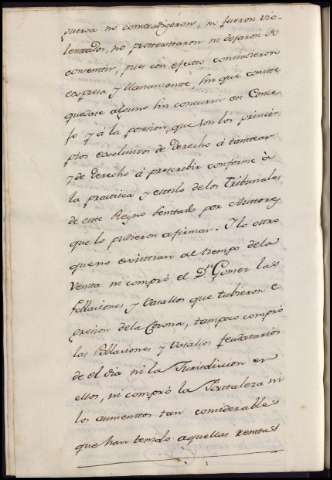 puerva no contradigeron, ni fueron vio-
lentados, no protextaron ni dejaron de
consentir, pues con efecto consintieron
expresa y llanamente, sin que conste
quedase alguno sin concurrir en Conce-
jo y á la posesion, que son los princi-
pios exclusivos de derecho á tantear
y de derecho á prescribir conforme á
la practica y estilo de los Tribunales
de este Reyno sentada por Autores
que lo pusieron afirman. Y lo otro
que no existieran al tiempo de la
Venta ni compró el Dn Gomer las
Poblaciones y Vasallos que tubieron e
gresion de la Corona, tampoco compró
las Poblaciones y Vasallos feudatarios
de el dia ni la Jurisdiccion en
ellos, ni compró la Fortaleza ni
los aumentos tan considerable
que han tenido aquellas rentas